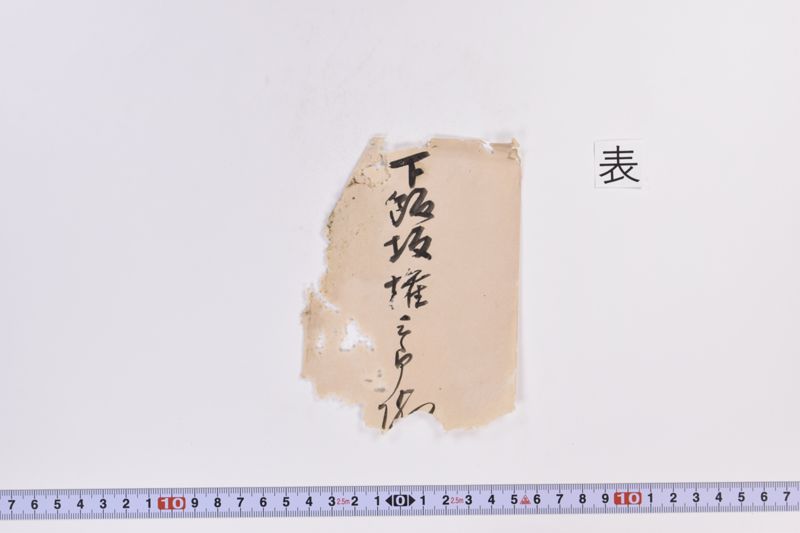 下飯坂権三郎
表
7 6 5 4 3 2 1 10 9 8 7 6 5 4 3 2.5m 2 1 0 1 2 2.5m 3 4 5 6 7 8 9 10 1 2 3 4 5 6 7